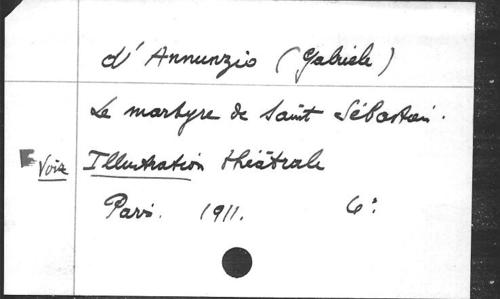 d'Annunzio (Gabriele)
Le martyre de Saint Sébastien.
Voir Illustration théâtrale
Paris. 1911. 4°: